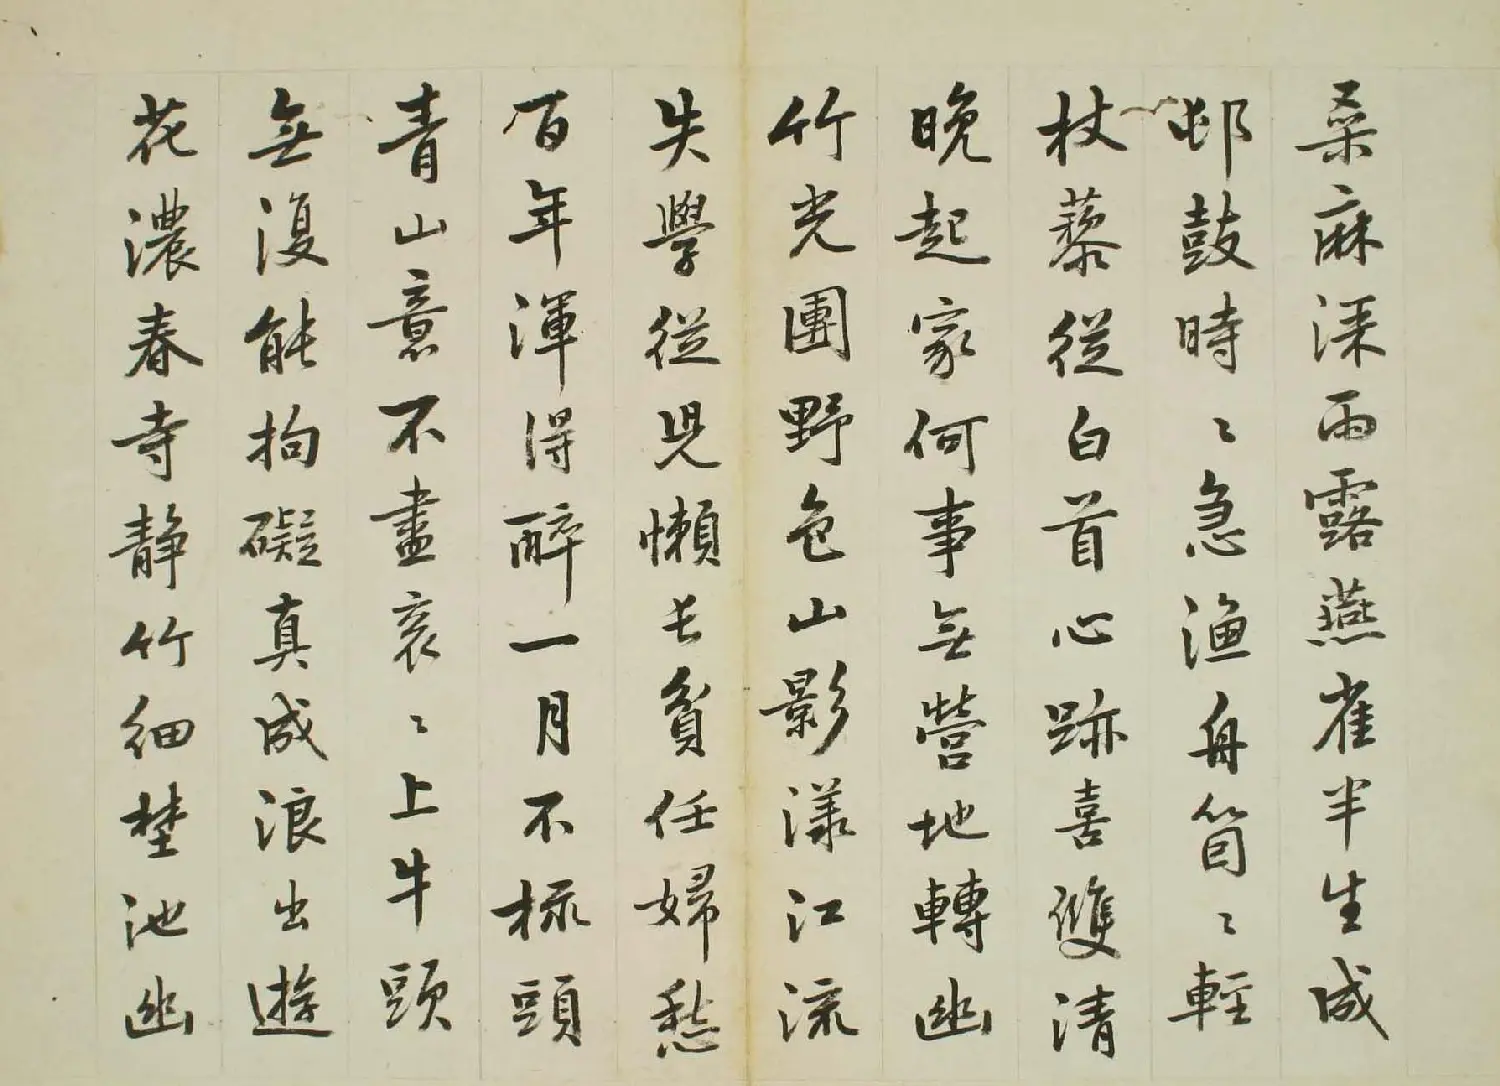 桑麻深雨露燕雀半生成
邨鼓時〻急漁舟箇〻輕
杖藜從白首心跡喜雙清
晚起家何事無營地轉幽
竹光團野色山影漾江流
失學從兒懶長貧任婦愁
百年渾得醉一月不梳頭
青山意不盡衮〻上牛頭
無復能拘礙真成浪出遊
花濃春寺静竹細埜池幽